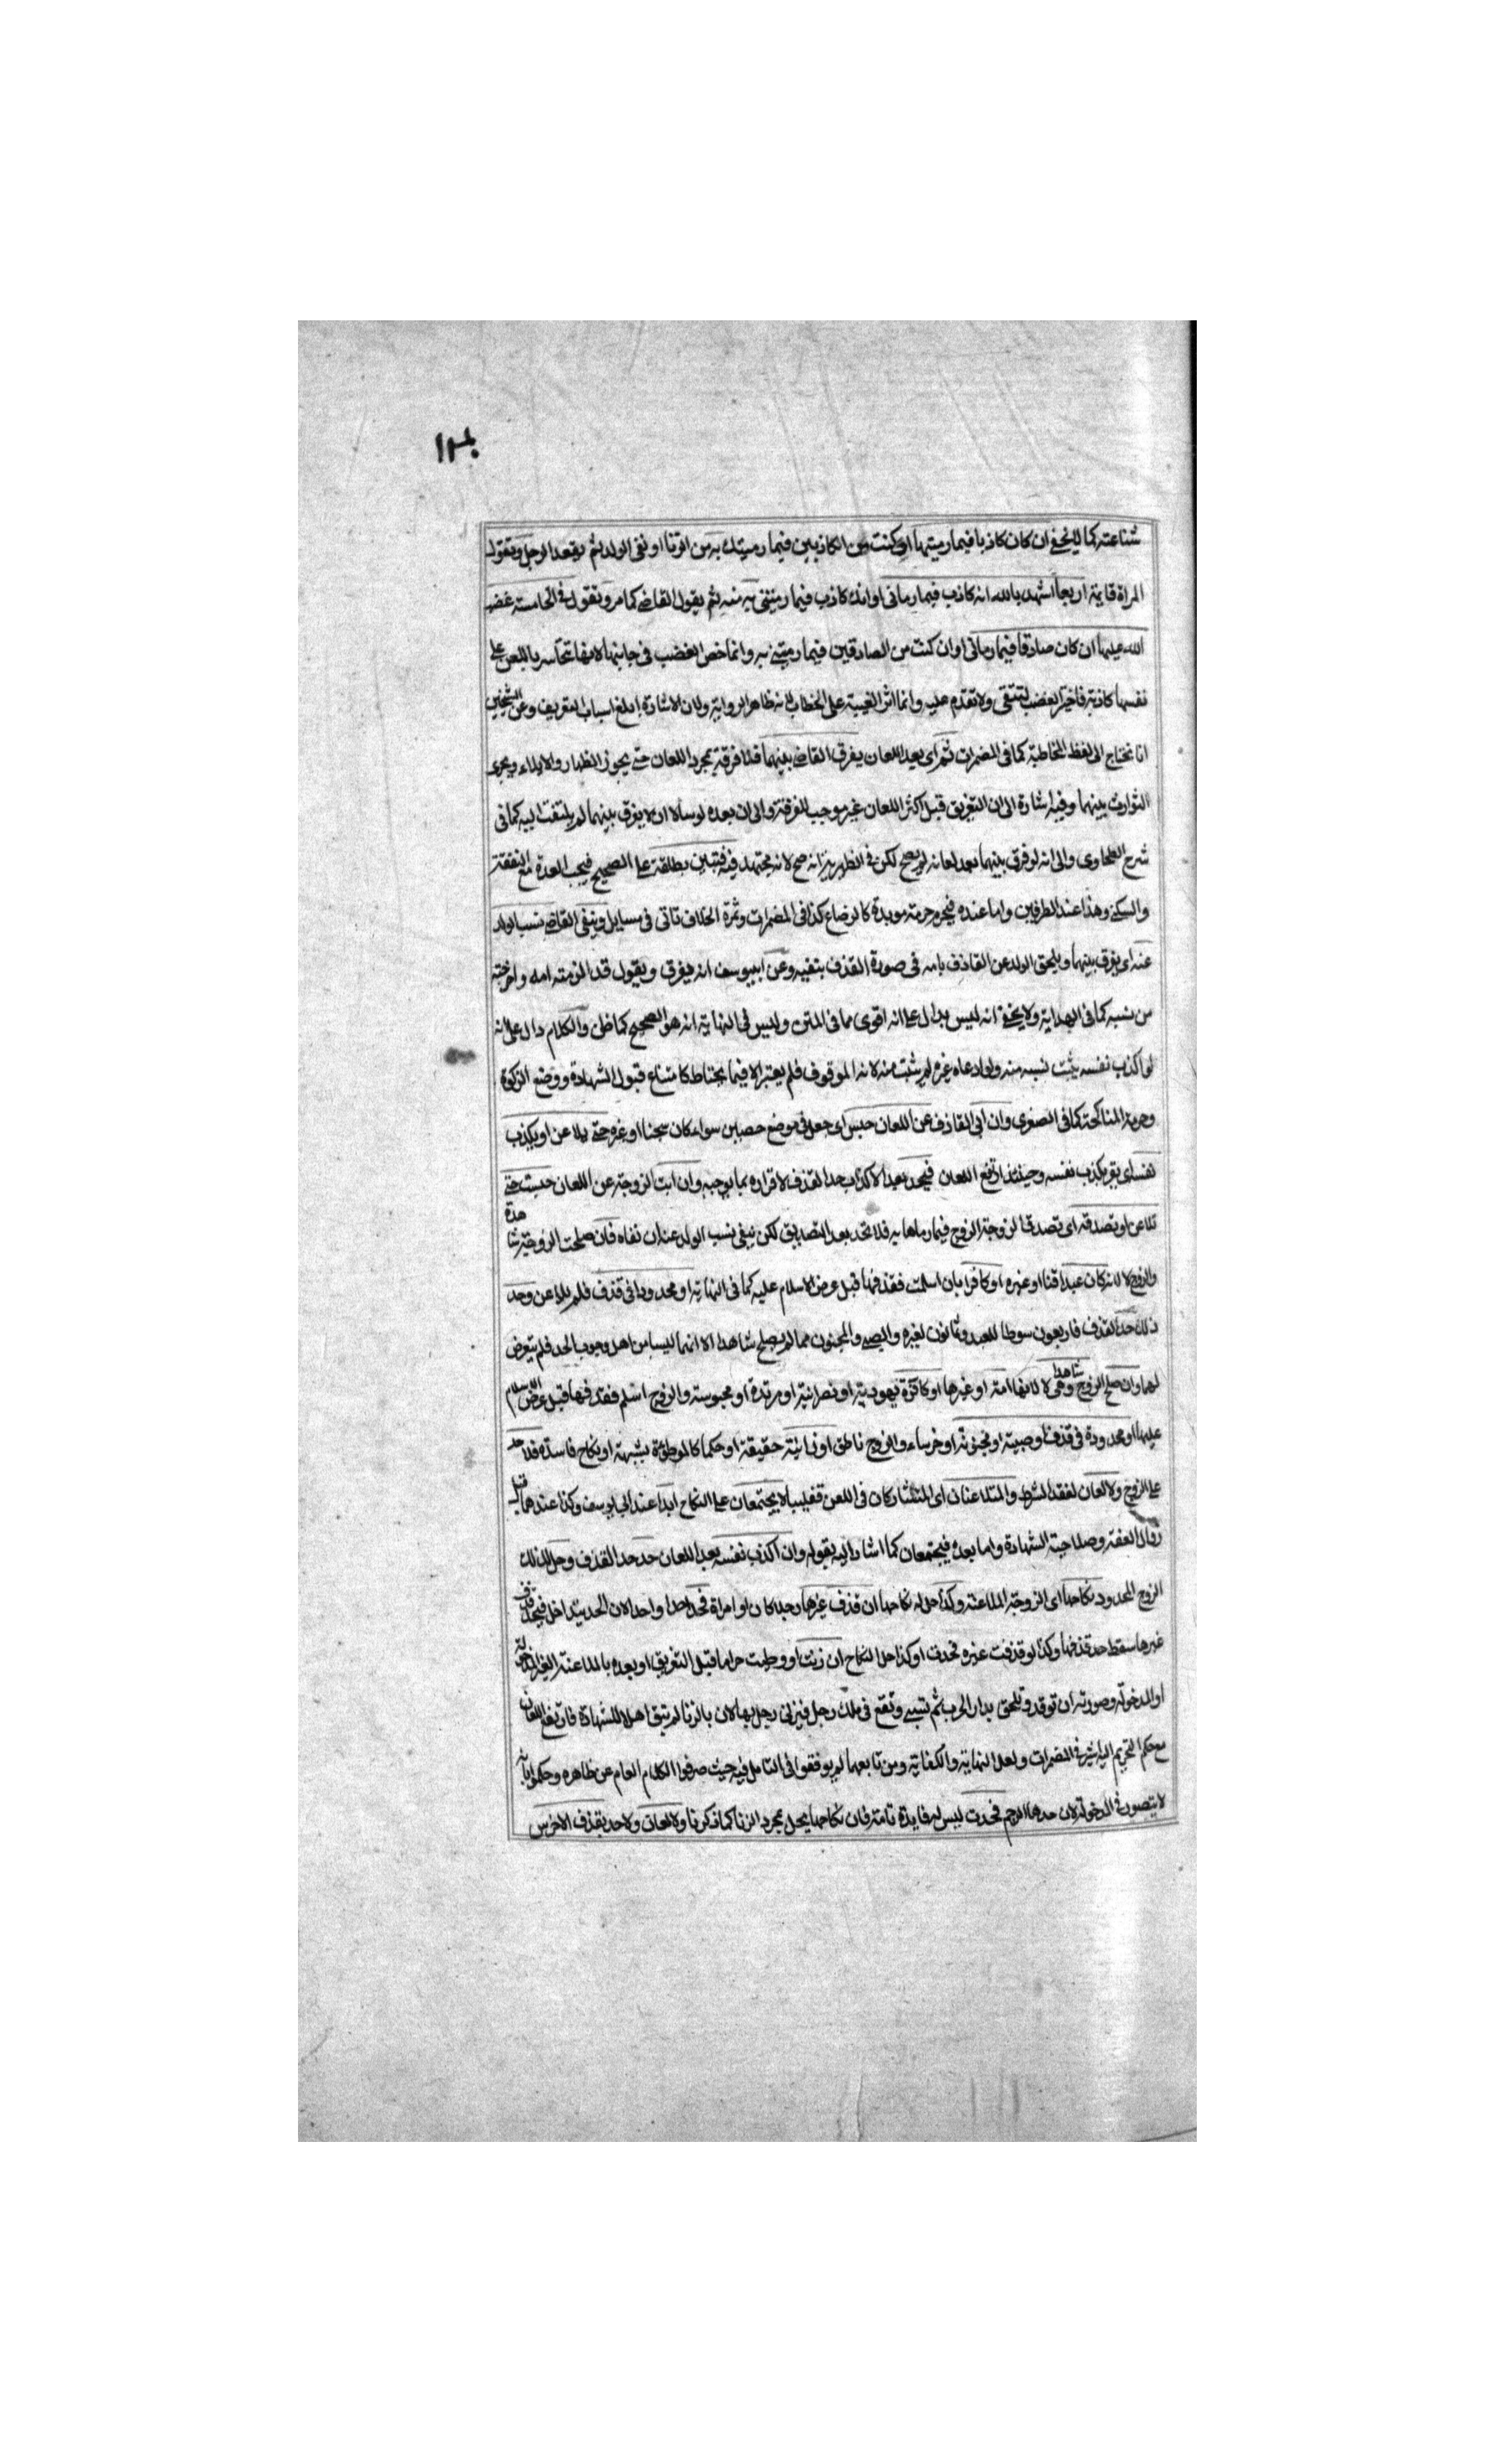 شناعته كما لا يخفى ان كان كاذبا فيما رميتها او كنت من الكاذبين فيما رميتك به من الزنا او نفى الولد ثم يقعد الرجل وتقول
المراة قايمة اربعا اشهد بالله انه كاذب فيما رمانى او انك كاذب فيما رميتنى به منه ثم يقول القاضى كما مر وتقول فى الخامسة غضب
الله عليها ان كان صادقا فيما رمانى او ان كنت من الصادقين فيما رميتنى به وانما خص الغضب فى جانبها لانها تتجاسر باللعن على
نفسها كاذبة فاختير الغضب لتتقى ولا تقدم عليه وانما اثر الغيبة على الخطاب لانه ظاهر الرواية ولان الاشارة ابلغ اسباب التعريف وعن الشيخين
انا نحتاج الى لفظ المخاطبة كما فى المضمرات ثم اى بعد اللعان يفرق القاضى بينهما فلا فرقة بمجرد اللعان حتى يجوز الظهار والايلاء ويجرى
التوارث بينهما وفيه اشارة الى ان التفريق قبل اكثر اللعان غير موجب للفرقة والى ان بعده لو سالا ان لا يفرق بينهما لم يلتفت اليه كما فى
شرح الطحاوى والى انه لو فرق بينهما بعد لعانه لم يصح لكن فى الظهيرية انه صح لانه مجتهد فيه فتبين بطلقة على الصحيح فيجب العدة مع النفقة
والسكنى وهذا عند الطرفين واما عنده فيحرم حرمة موبدة كالرضاع كذا فى المضمرات وثمرة الخلاف تاتى فى مسايل وينفى القاضى نسب الولد
عنه اى يفرق بينهما ويلحق الولد عن القاذف بامه فى صورة القذف بنفيه وعن ابيوسف انه يفرق ويقول قد الزمته امه واخرجته
من نسبه كما فى الهداية ولا يخفى انه ليس بدال على انه اقوى مما فى المتن وليس فى النهاية انه هو الصحيح كما ظن والكلام دال على انه
لو اكذب نفسه يثبت نسبه منه ولو ادعاه غيره لم يثبت منه لانه الموقوف فلم يعتبر الا فيما يحتاط كامتناع قبول الشهادة ووضع الزكوة
وحرمة المناكحة كما فى الصغرى وان ابى القاذف عن اللعان حبس اى جعل فى موضع حصين سواء كان سجنا او غيره حتى يلاعن او يكذب
نفسه اى يقر بكذب نفسه وحينئذ ارتفع اللعان فيحد بعد الاكذاب حد القذف لاقراره بما يوجبه وان ابت الزوجة عن اللعان حبست حتى
تلاعن او تصدقه اى تصدق الزوجة الزوج فيما رماها به فلا تحد بعد التصديق لكن ينفى نسب الولد عنه ان نفاه فان صلحت الزوجة شاهدة
والزوج لا لانه كان عبدا قنا او غيره او كافرا بان اسلمت فقذفها قبل عرض الاسلام عليه كما فى النهاية او محدودا فى قذف فلم يلاعن وحد
ذلك حد القذف فاربعون سوطا للعبد وثمانون لغيره والصبى والمجنون مما لم يصلح شاهدا الا انهما ليسا من اهل وجوب الحد فلم يتعرض
لهما وان صلح الزوج شاهدا وهى لا لانها امة او غيرها او كافرة يهودية او نصرانية او مرتدة او مجوسية والزوج اسلم فقذفها قبل عرض الاسلام
عليها او محدودة فى قذف او صبية او مجنونة او خرساء والزوج ناطق او زانية حقيقة او حكما كالموطؤة بشبهة او نكاح فاسد فلا حد
على الزوج ولا لعان لفقد الشرط والمتلاعنان اى المتشاركان فى اللعن تغليبا لا يجتمعان على النكاح ابدا عند ابى يوسف وكذا عندهما قبل
زوال العفة وصلاحية الشهادة واما بعده فيجتمعان كما اشار اليه بقوله وان اكذب نفسه بعد اللعان حد حد القذف وحل لذلك
الزوج المحدود نكاحها اى الزوجة الملاعنة وكذا حل له نكاحها ان قذف غيرها رجلا كان او امراة فحد احدا واحدا لان الحد يتداخل فيحد قذف
غيرها سقط حد قذفها وكذا لو قذفت غيره فحدت او كذا حل النكاح ان زنت او وطيت حراما قبل التفريق او بعده بالملاعنة الغير المدخولة
او المدخولة وصورته ان توقد وتلحق بدار الحرب ثم تسبى وتقع فى ملك رجل فيزنى رجل بها لان بالزنا لم تبق اهلا للشهادة فارتفع اللعان
مع حكم التحريم اليه اشير فى المضمرات ولعل النهاية والكفاية ومن تابعهما لم يوفقوا فى التامل فيه حيث صرفوا الكلام العام عن ظاهره وحكموا بانه
لا يتصور فى المدخولة لان حدها الرجم فحدت ليس له فايدة تامة فان نكاحها يحل بمجرد الزنا كما ذكرنا ولا لعان ولا حد بقذف الاخرس